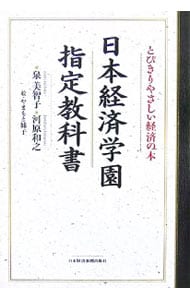 とびきりやさしい経済の本
日本経済学園
指定教科書
泉 美智子
河原和之
絵・やまもと妹子
日本経済新聞出版社